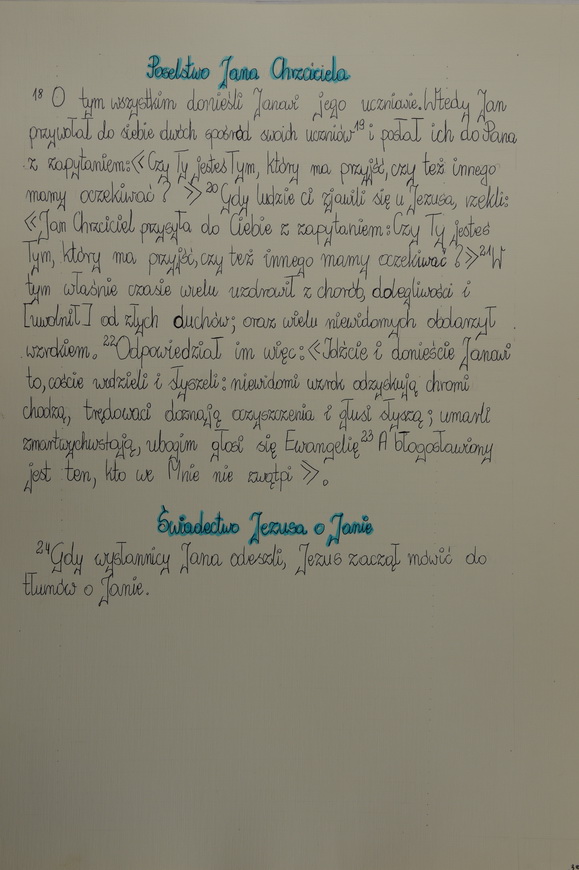 Poselstwo Jana Chrzciciela
18 O tym wszystkim donieśli Janowi jego uczniowie. Wtedy Jan
przywołał do siebie dwóch spośród swoich uczniów 19 i posłał ich do Pana
z zapytaniem: «Czy Ty jesteś Tym, który ma przyjść, czy też innego
mamy oczekiwać? » 20 Gdy ludzie ci zjawili się u Jezusa, rzekli:
«Jan Chrzciciel przysyła do Ciebie z zapytaniem: Czy Ty jesteś
Tym, który ma przyjść, czy też innego mamy oczekiwać?» 21 W
tym właśnie czasie wielu uzdrowił z chorób, dolegliwości i
[uwolnił] od złych duchów; oraz wielu niewidomych obdarzył
wzrokiem. 22 Odpowiedział im więc: «Idźcie i donieście Janowi
to, coście widzieli i słyszeli: niewidomi wzrok odzyskują chromi
chodzą, trędowaci doznają oczyszczenia i głusi słyszą; umarli
zmartwychwstają, ubogim głosi się Ewangelię 23 A błogosławiony
jest ten, kto we Mnie nie zwątpi ».
Świadectwo Jezusa o Janie
24 Gdy wysłannicy Jana odeszli, Jezus zaczął mówić do
tłumów o Janie.